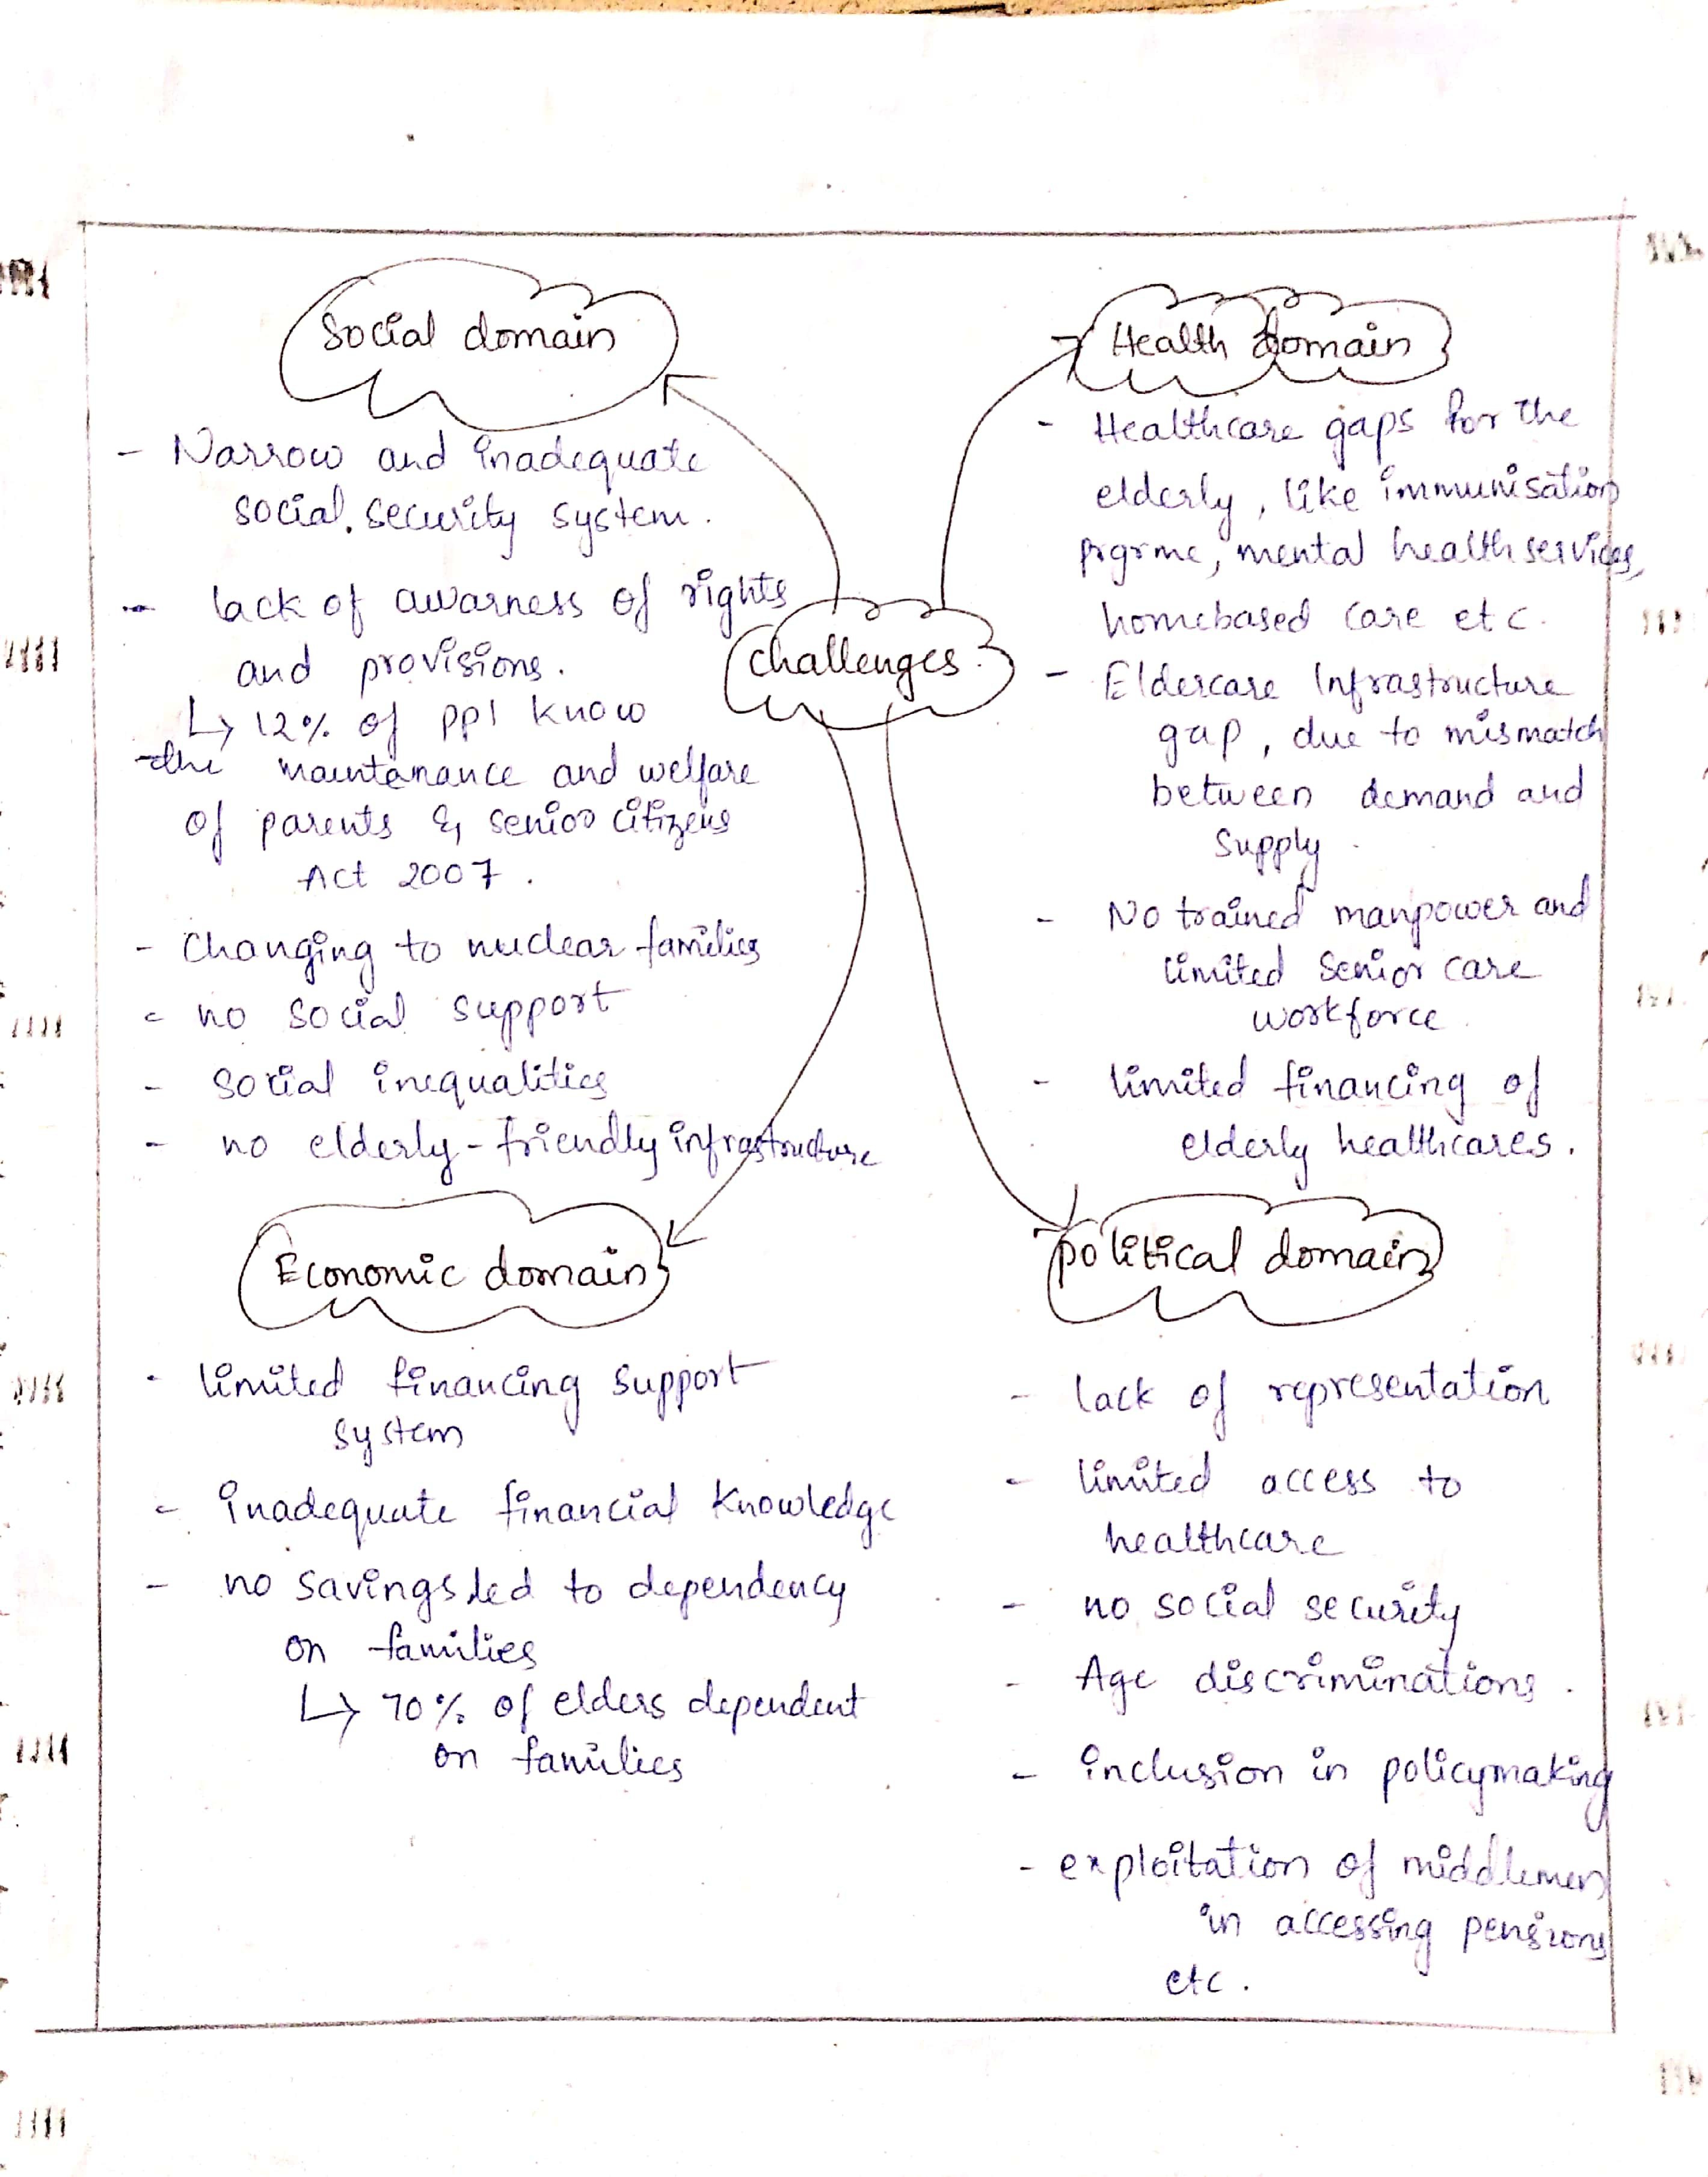 Social domain
- Narrow and inadequate
social security system.
- lack of awarness of rights
and provisions.
↳ 12% of ppl know
the maintanance and welfare
of parents & senior citizens
Act 2007.
- Changing to nuclear families
- no social support
- social inequalities
- no elderly-friendly infrastructure
challenges
Health domain
- Healthcare gaps for the
elderly, like immunisation
prgrme, mental health services,
homebased care etc.
- Eldercare Infrastructure
gap, due to mismatch
between demand and
supply.
- No trained manpower and
limited senior care
workforce.
- limited financing of
elderly healthcares.
Economic domain
- limited financing support
system
- inadequate financial knowledge
- no savings led to dependency
on families
↳ 70% of elders dependent
on families
political domain
- lack of representation
- limited access to
healthcare
- no social security
- Age discriminations.
- inclusion in policymaking
- exploitation of middlemen
in accessing pensions
etc.